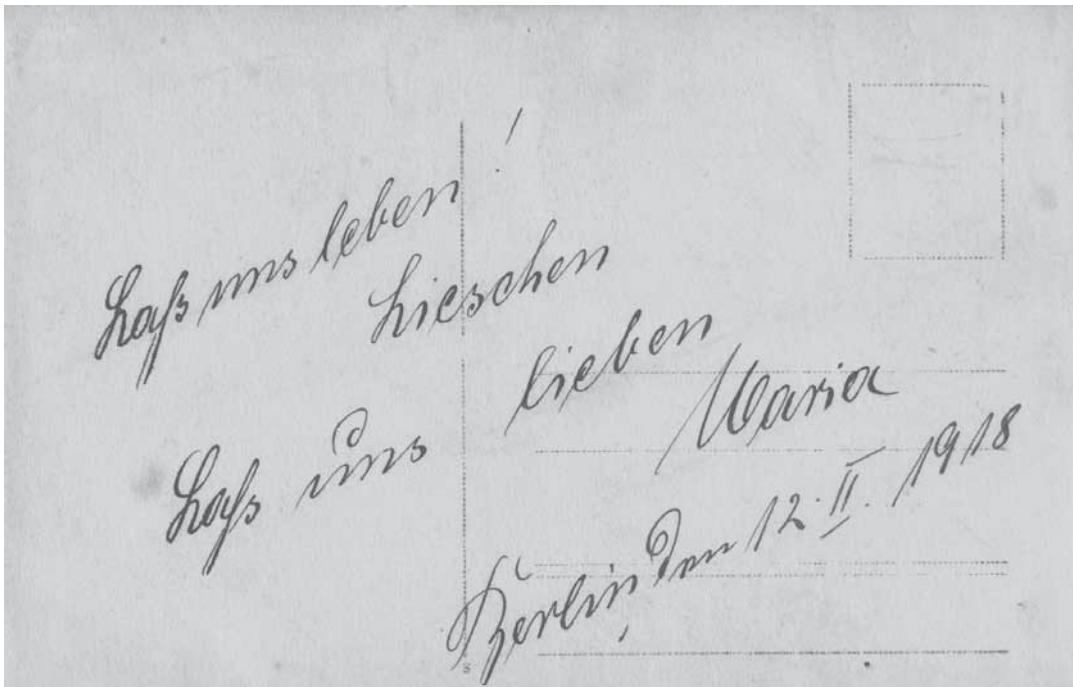 Laß uns leben!
Lieschen
Laß uns lieben
Maria
Berlin, den 12. II. 1918